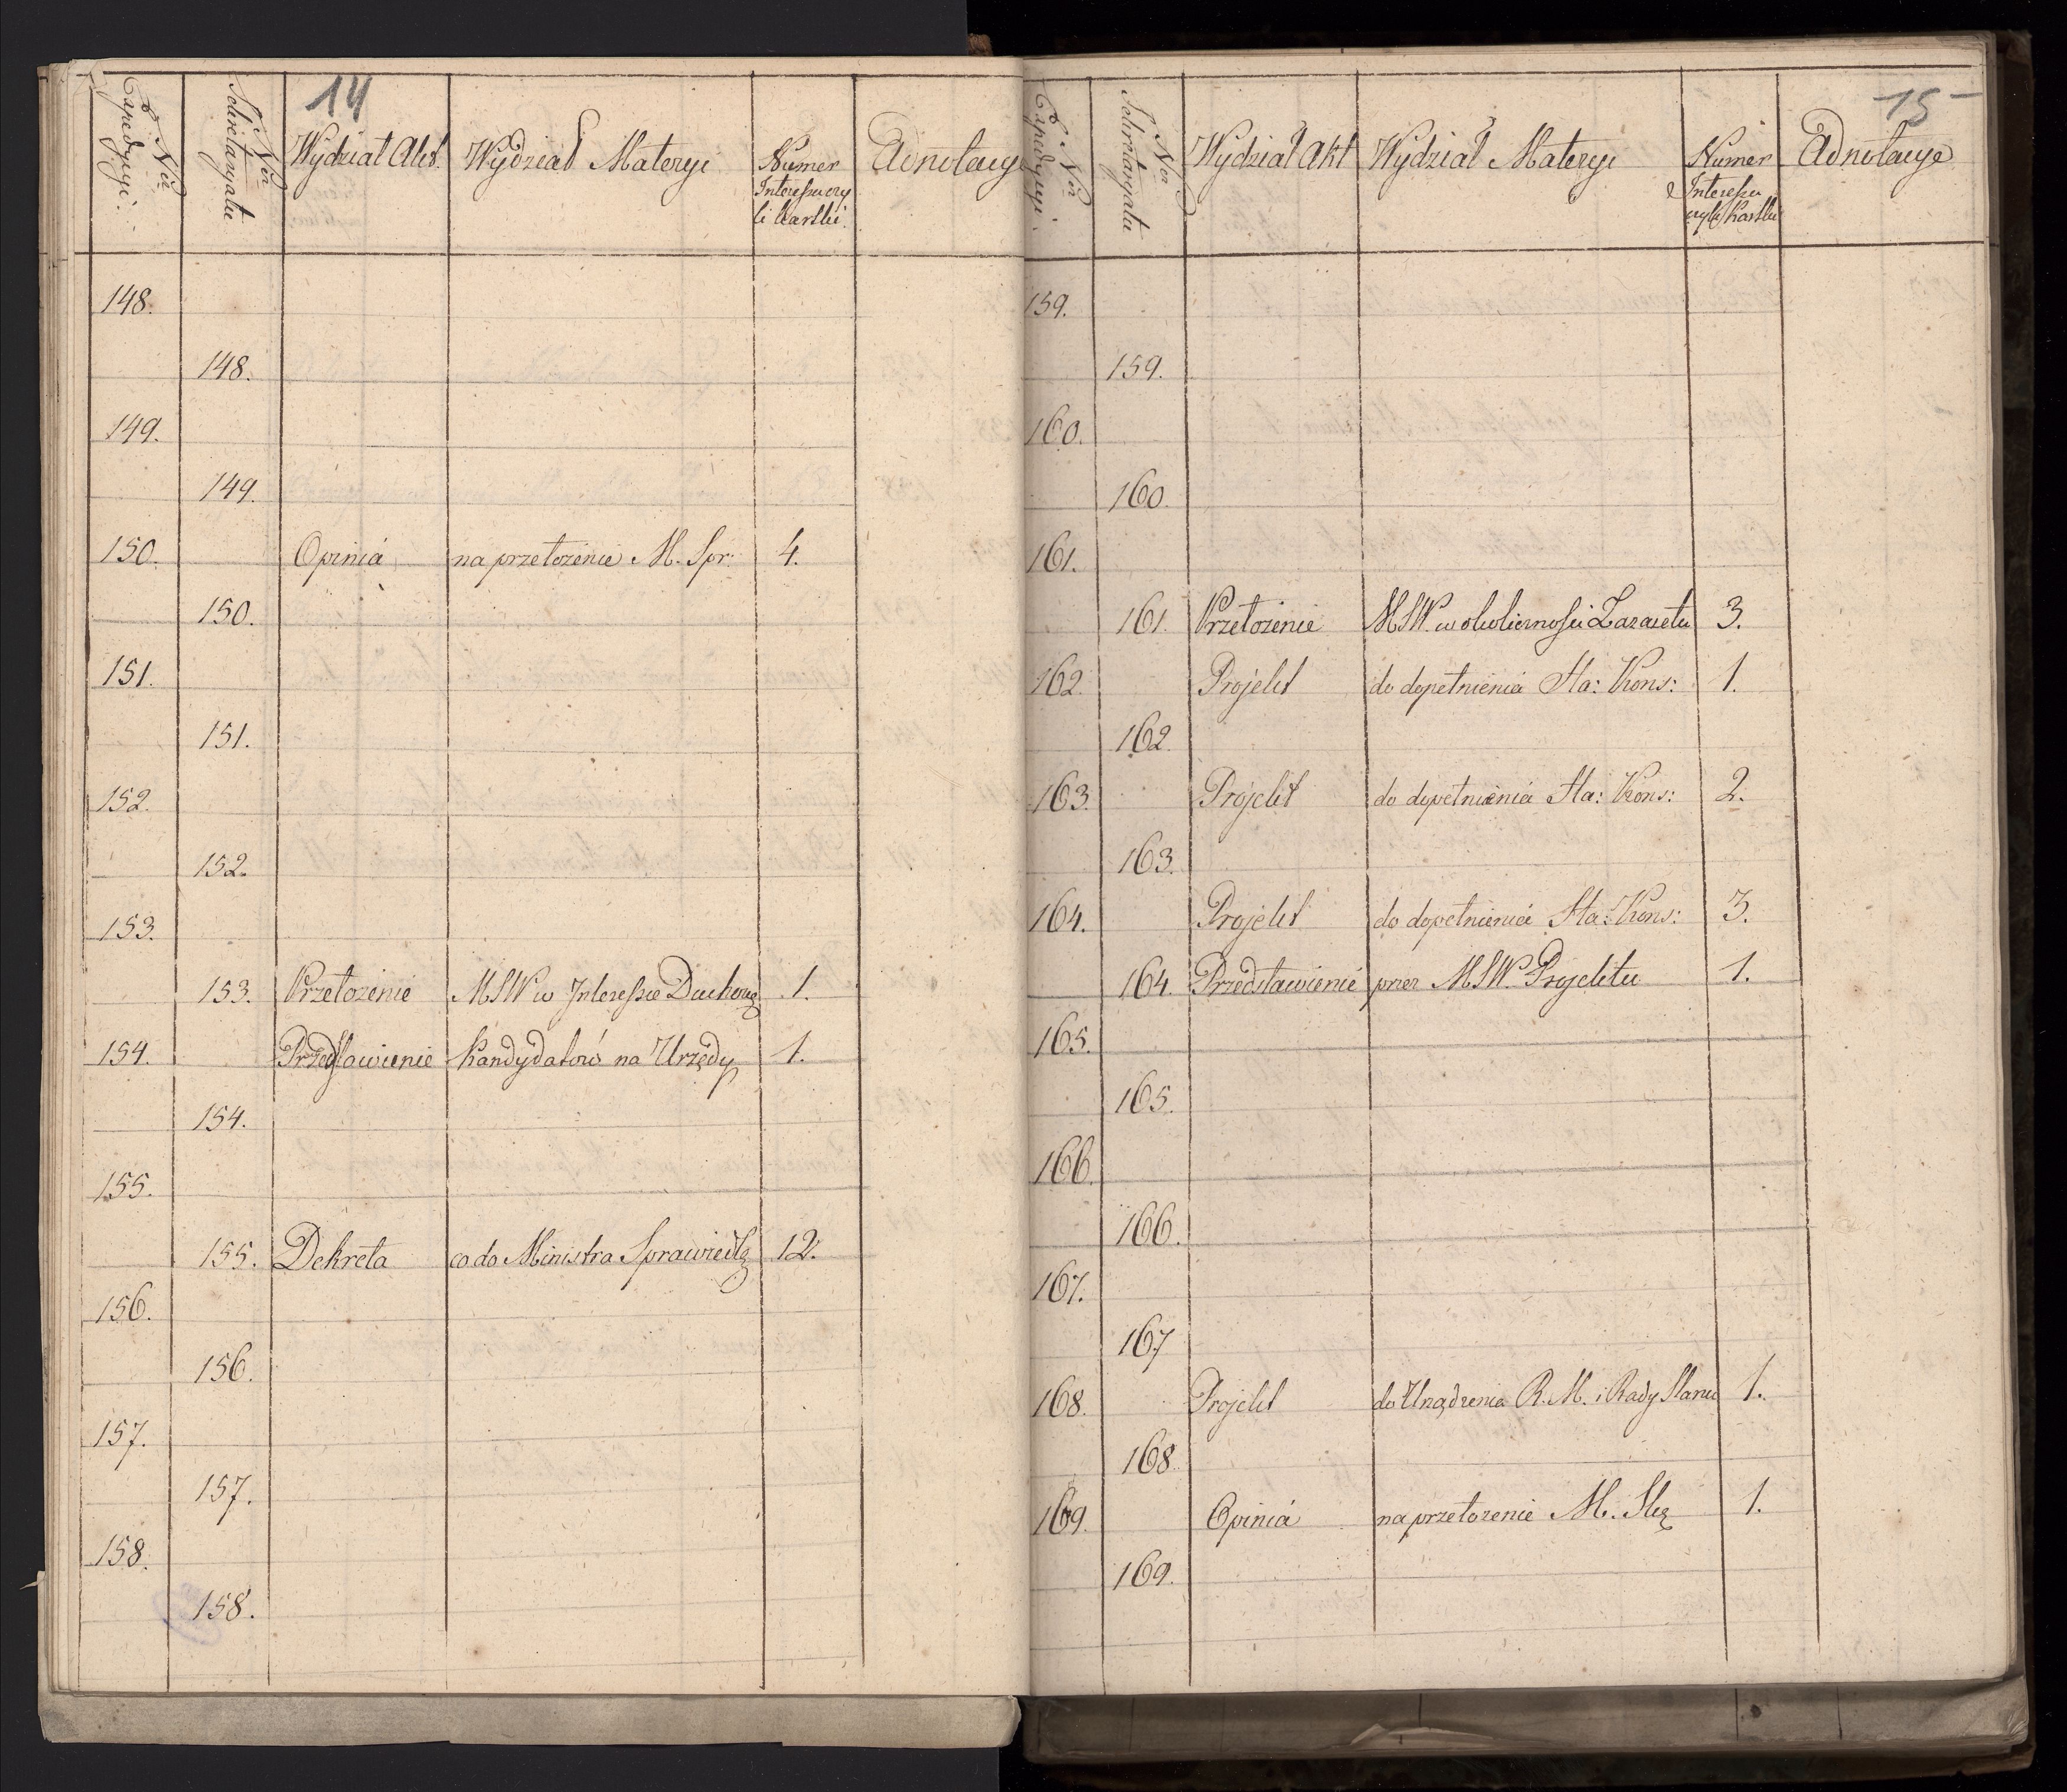 14
Nro Expedycyi.
Nro Sekretaryatu
Wydział Akt.
Wydział Materyi
Numer Interessu czyli kartki.
Adnotacye
148.
148.
149.
149.
150. Opiniá na przełożenie M. Spr: 4.
150.
151.
151.
152.
152.
153.
153. Przełożenie MSW w Interessie Duchowę 1.
154. Przedstawienie Kandydatów na Urzędy 1.
154.
155.
155. Dekreta co do Ministra Sprawiedlę 12.
156.
156.
157.
157.
158.
158.
15
Nro Expedycyi.
Nro Sekretaryatu
Wydział Akt
Wydział Materyi
Numer Interessu czyli kartki
Adnotacye
159.
159.
160.
160.
161.
161. Przełożenie MSW. w okolicznosci Lazaretu 3.
162. Projekt do dopełnienia Sta: Kons: 1.
162.
163. Projekt do dopełnienia Sta: Kons: 2.
163.
164. Projekt do dopełnienia Sta: Kons: 3.
164. Przedstawienie przez MSW. Projektu 1.
165.
165.
166.
166.
167.
167
168. Projekt do Urządzenia R. M. i Rady Stanu 1.
168
169. Opiniá na przełożenie M. 1.
169.